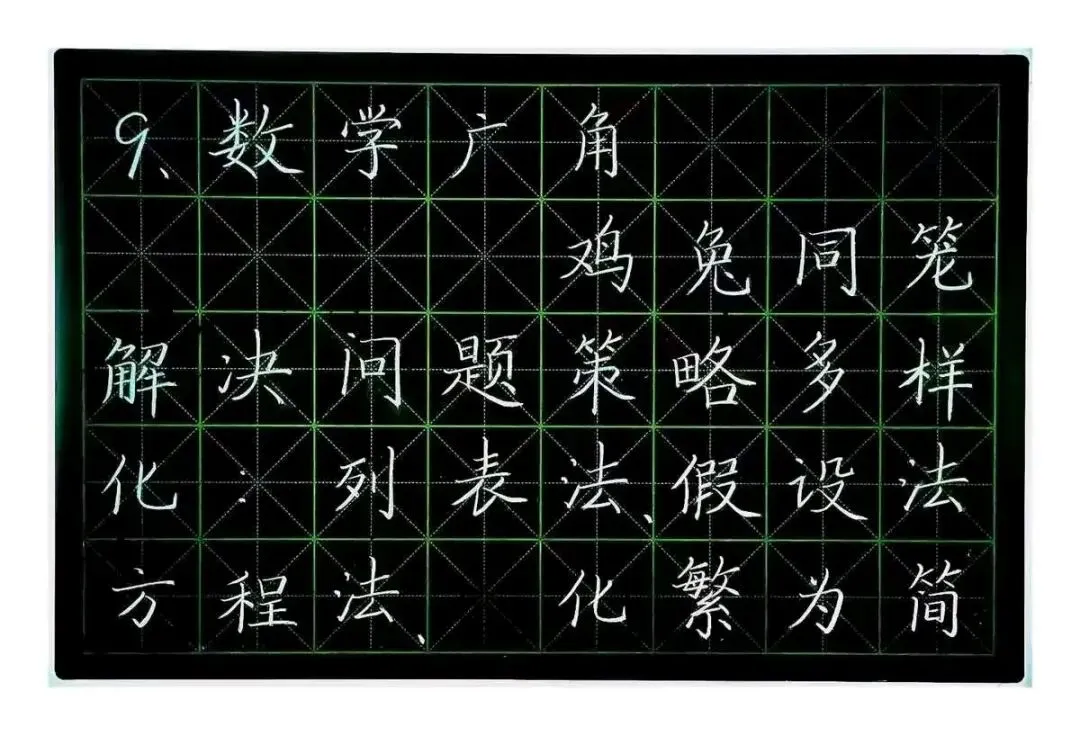 9、数学广角
鸡兔同笼
解决问题策略多样
化：列表法、假设法
方程法、 化繁为简